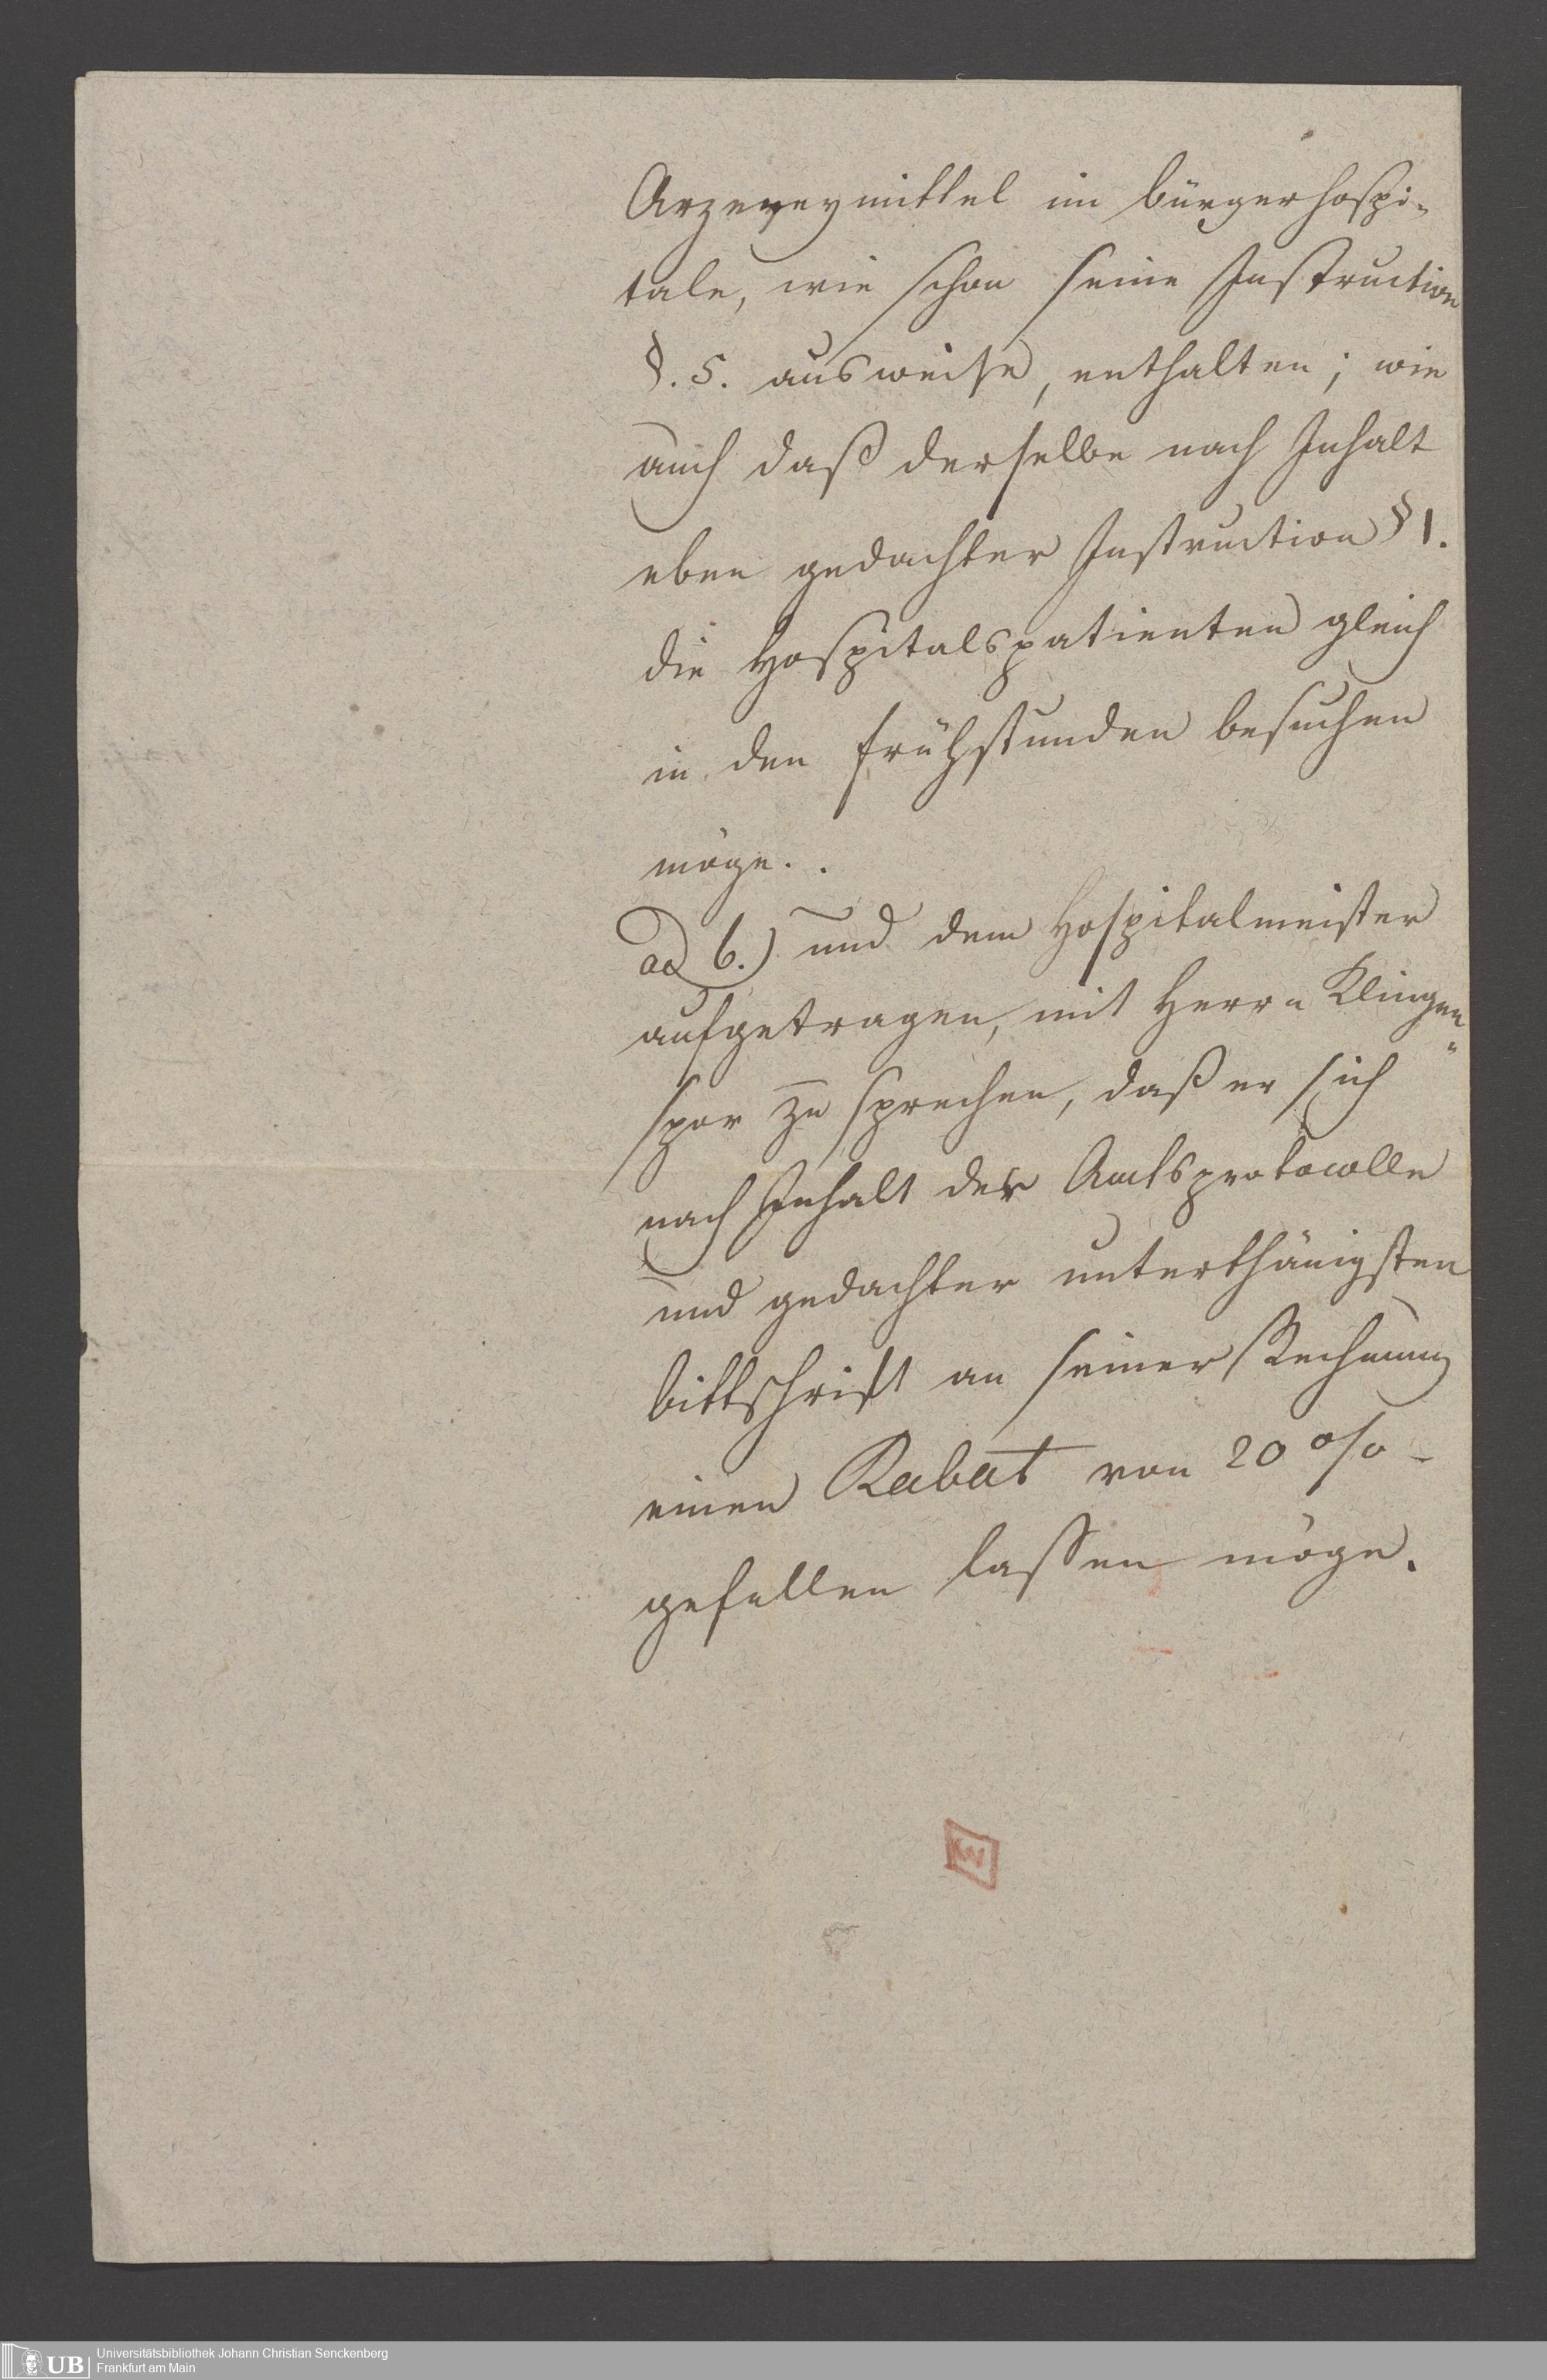 Arzeneymittel im Bürgerhospi-
tale, wie schon seine Instruction
§. 5. ausweise, enthalten; wie
auch daß derselbe nach Inhalt
eben gedachter Instruction § 1.
die Hospitalspatienten gleich
in den Frühstunden besuchen
möge.
ad 6.) und dem Hospitalmeister
aufgetragen, mit Herrn Klingen-
spor zu sprechen, daß er sich
nach Inhalt der Amtsprotocolle
und gedachter unterthänigsten
Bittschrift an seiner Rechnung
einen Rabat von 20 o/o
gefallen lassen möge.
UB
Universitätsbibliothek Johann Christian Senckenberg
Frankfurt am Main